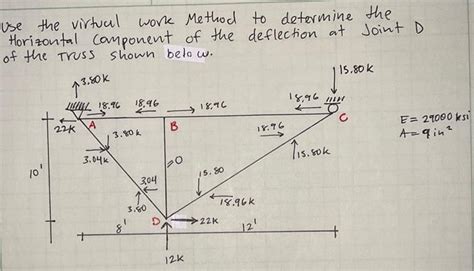 Use the virtual work Method to determine the
Horizontal component of the deflection at Joint D
of the Truss shown below.
3.80k
15.80k
18.96
18.96
18.96
18.96
22k
A
B
C
E = 29000 ksi
A = 9 in²
3.80k
18.96
3.04k
15.80k
0
10'
3.04
15.80
3.80
18.96k
D
22k
8'
12'
12k